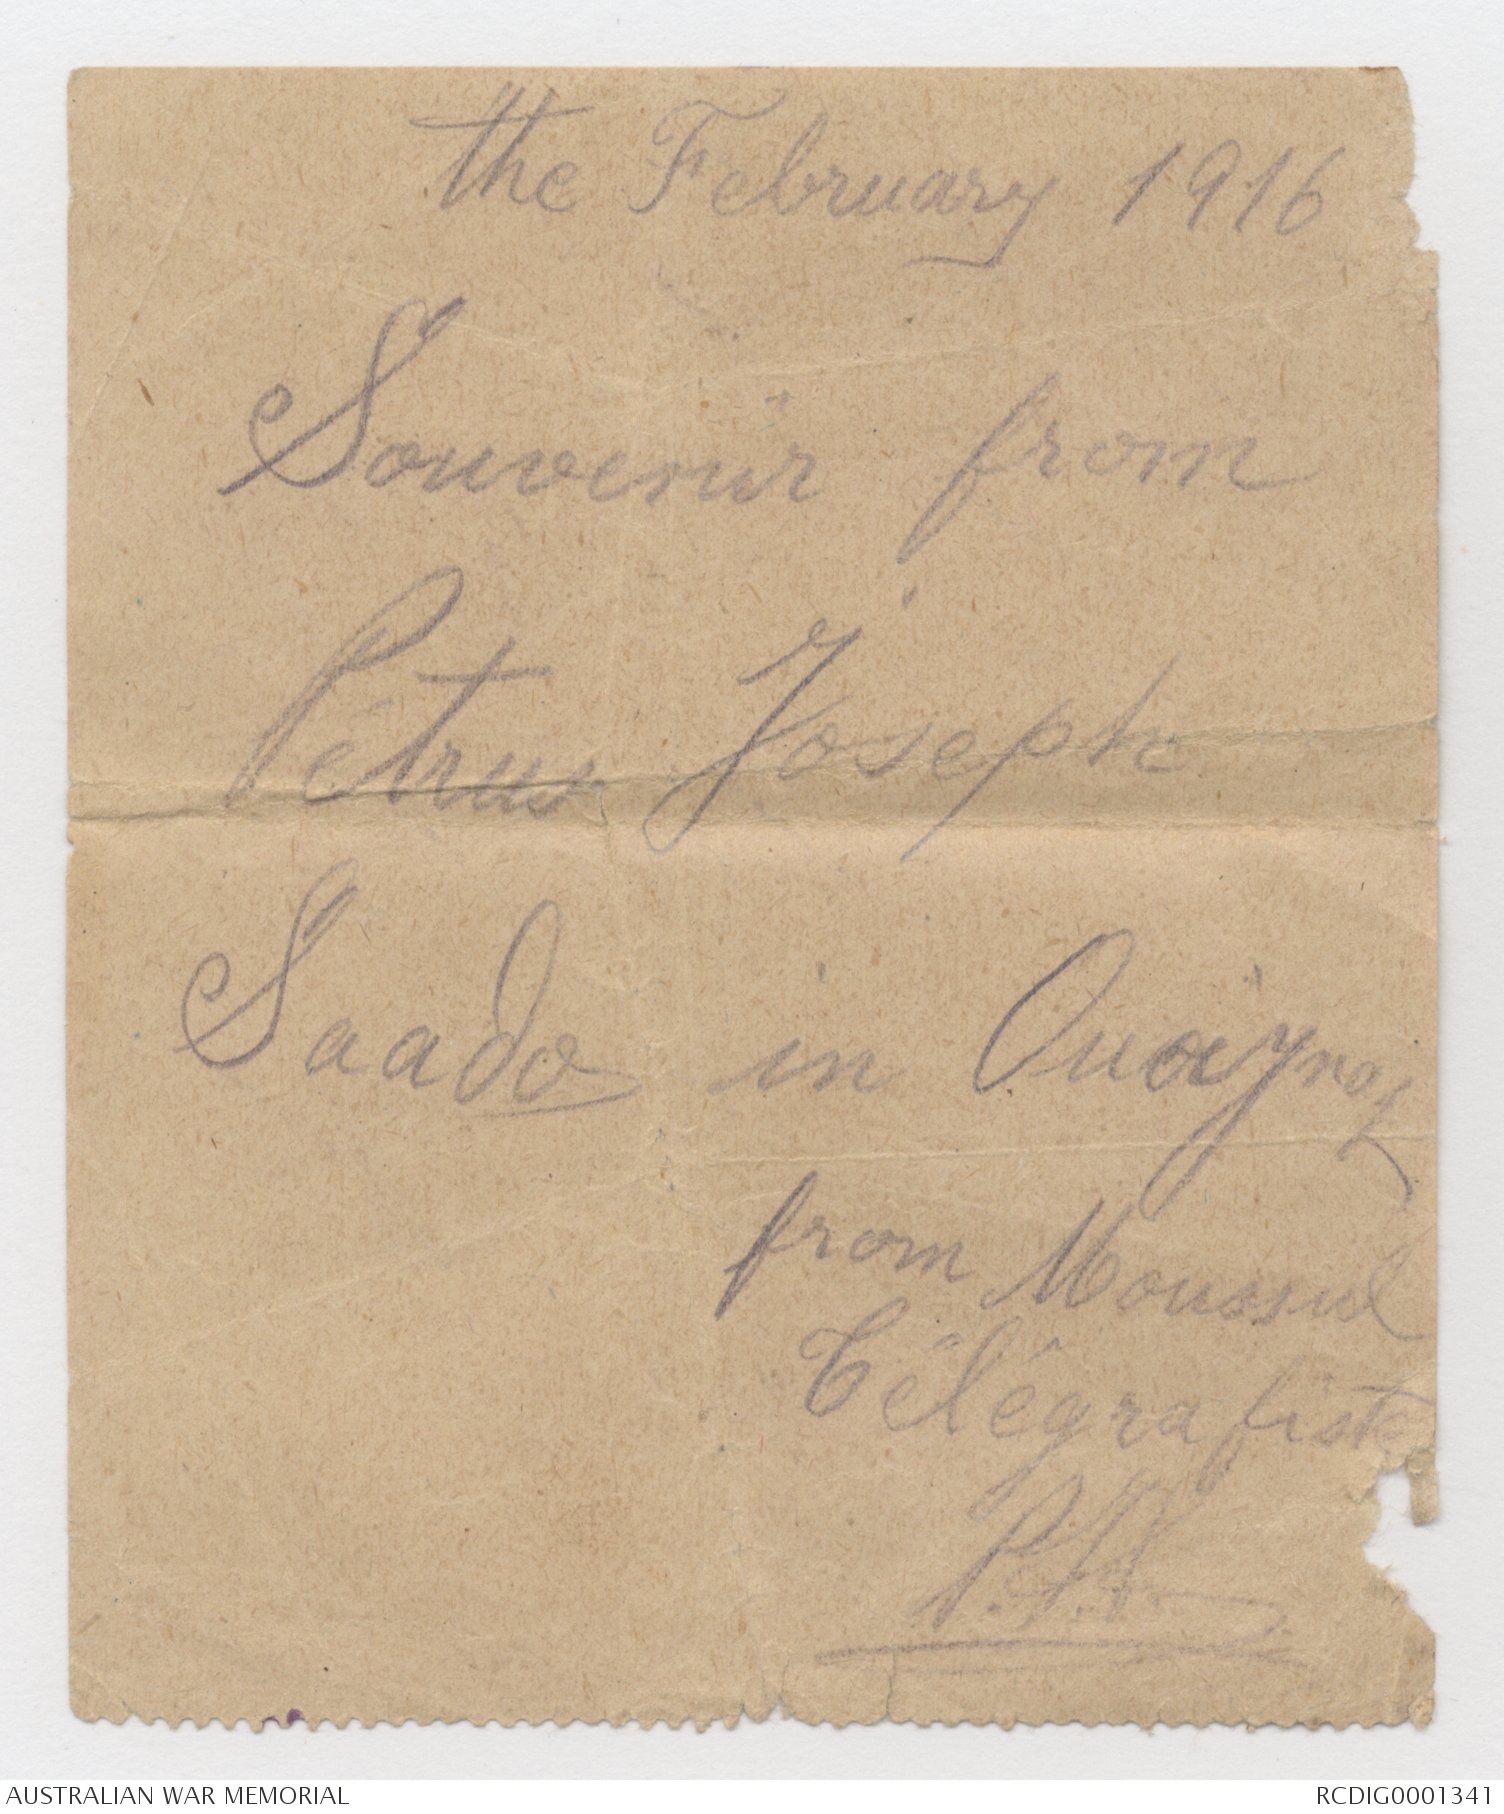 the February 1916
Souvenir from
Pétrus Joseph
Saado in
from Moussul
Télégrafiste
AUSTRALIAN WAR MEMORIAL
RCDIG0001341